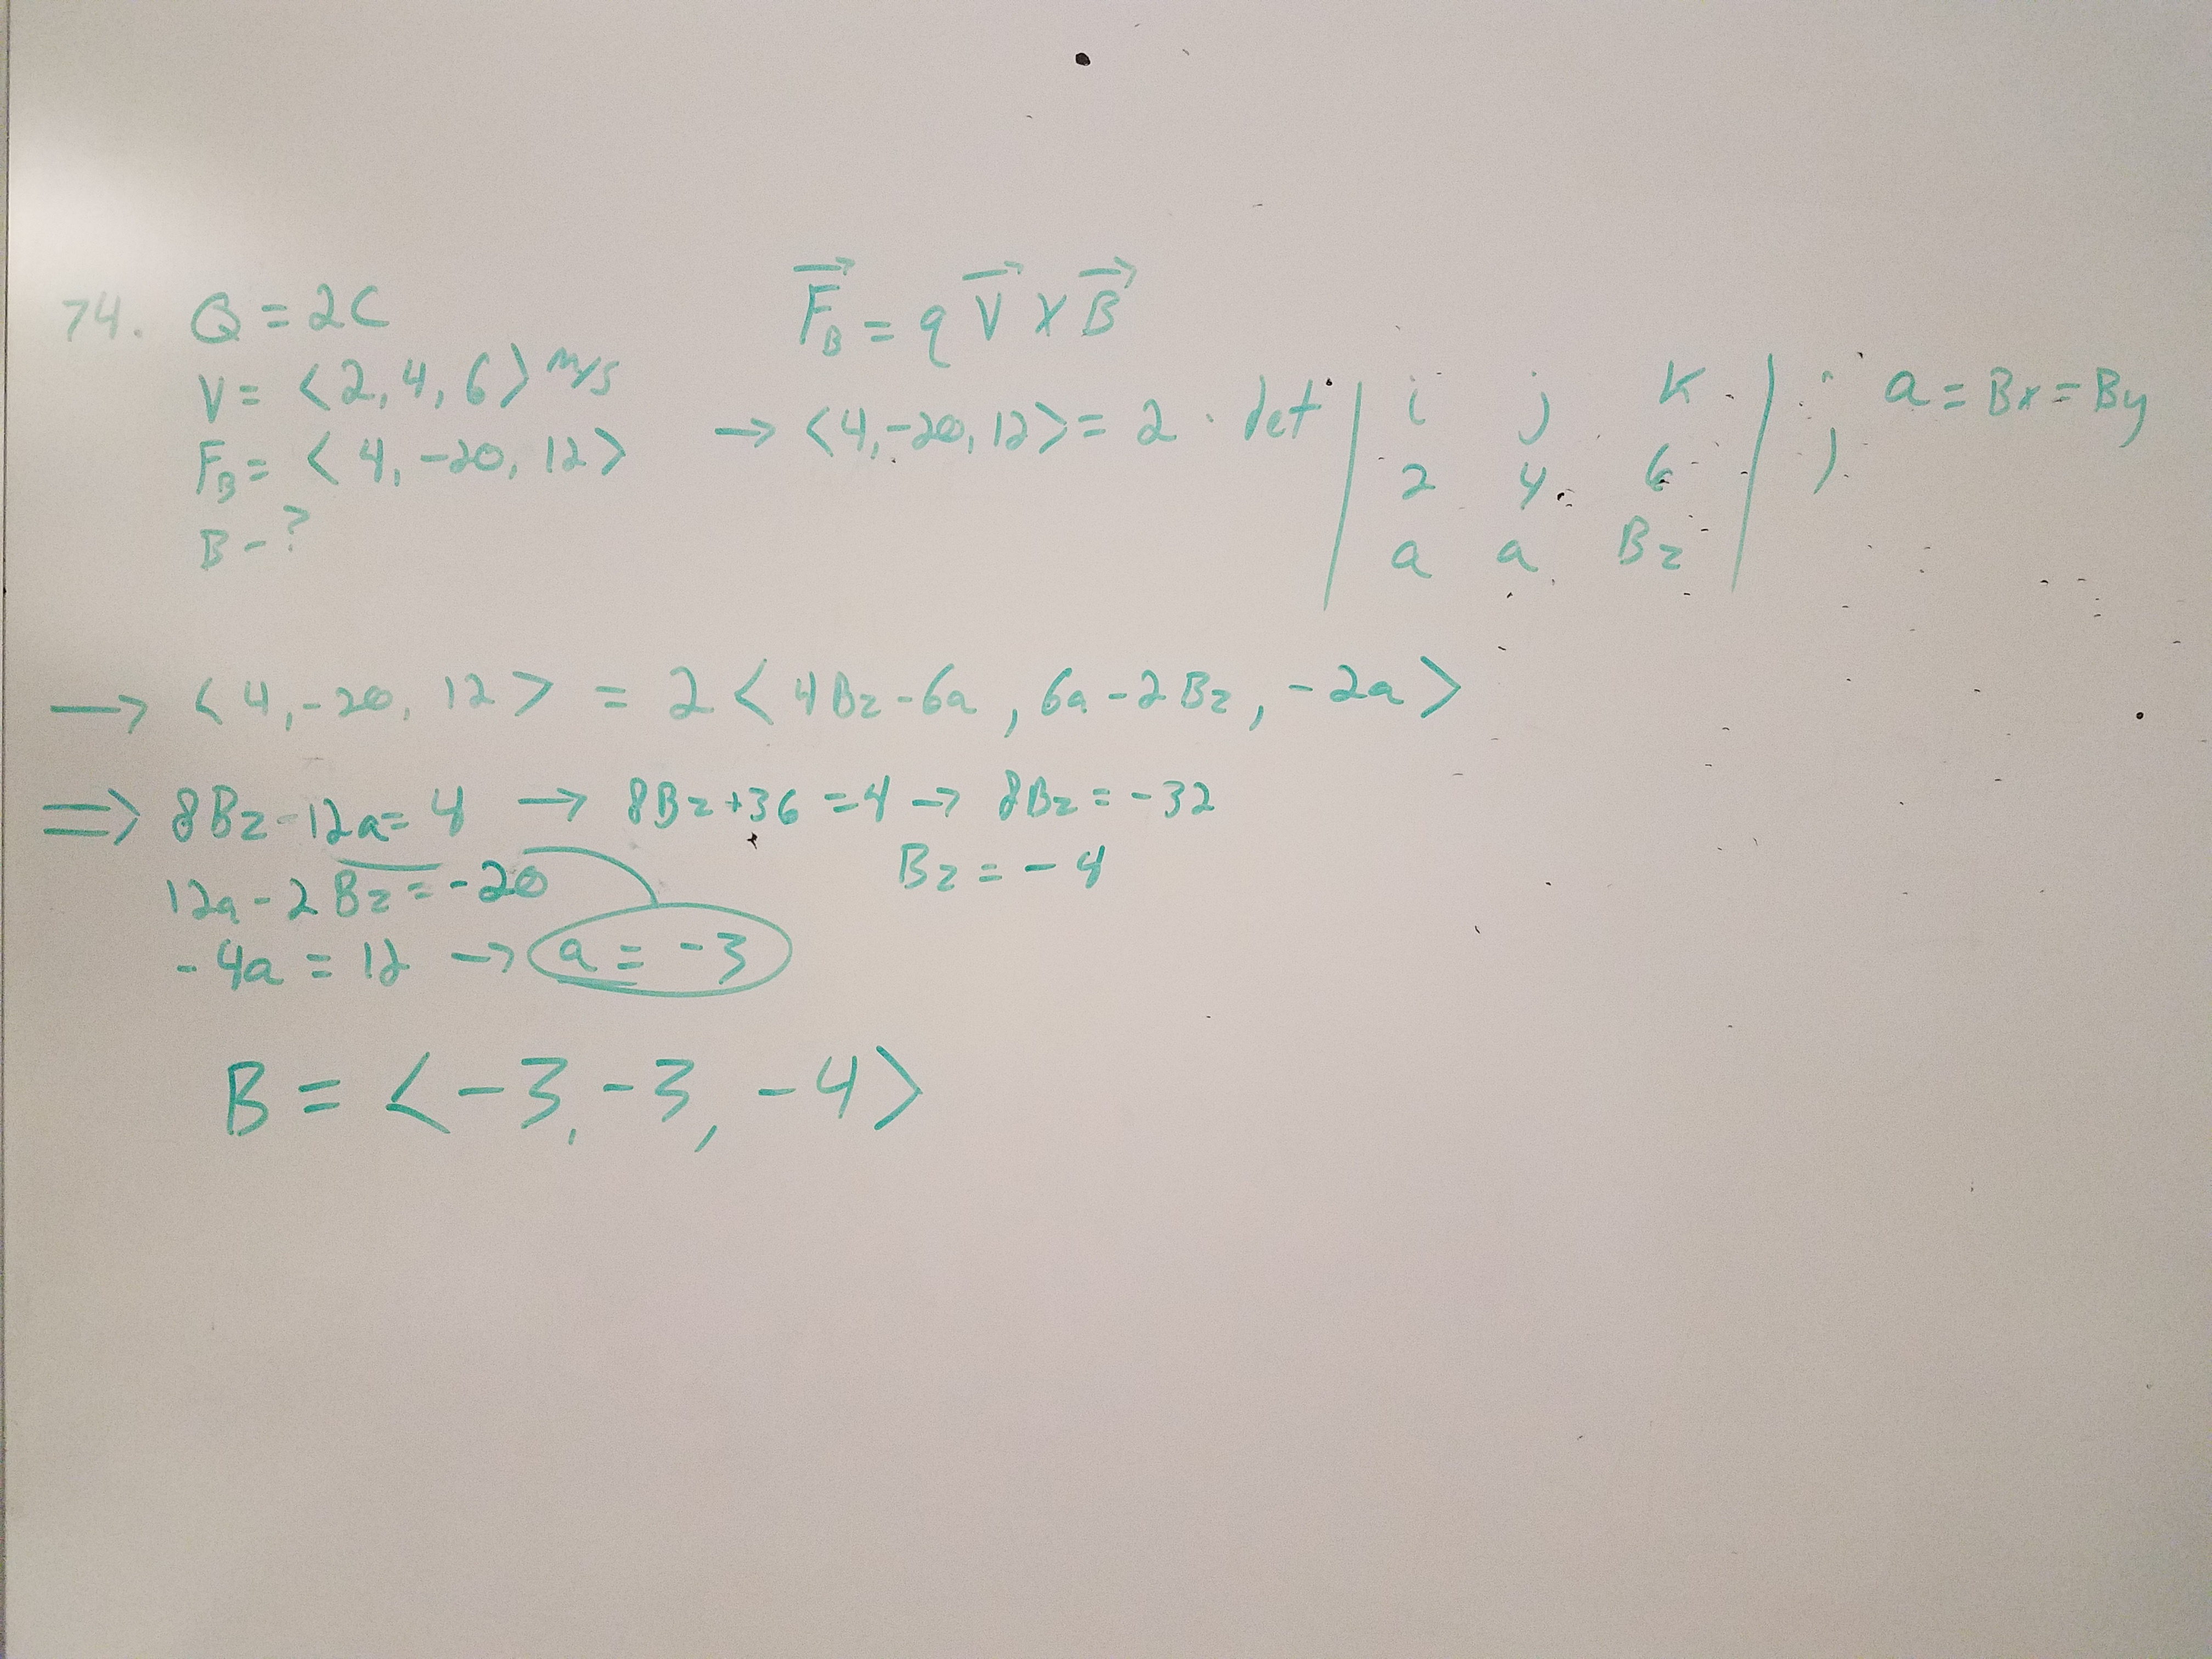 74. Q = 2C
V = <2, 4, 6> m/s
F_B = <4, -20, 12>
B - ?
F_B = q V x B
→ <4, -20, 12> = 2 · det | i j k | ; a = Bx = By
2 4 6
a a Bz
→ <4, -20, 12> = 2 <4Bz - 6a, 6a - 2Bz, -2a>
⇒ 8Bz - 12a = 4 → 8Bz + 36 = 4 → 8Bz = -32
12a - 2Bz = -20 Bz = -4
-4a = 12 → a = -3
B = <-3, -3, -4>